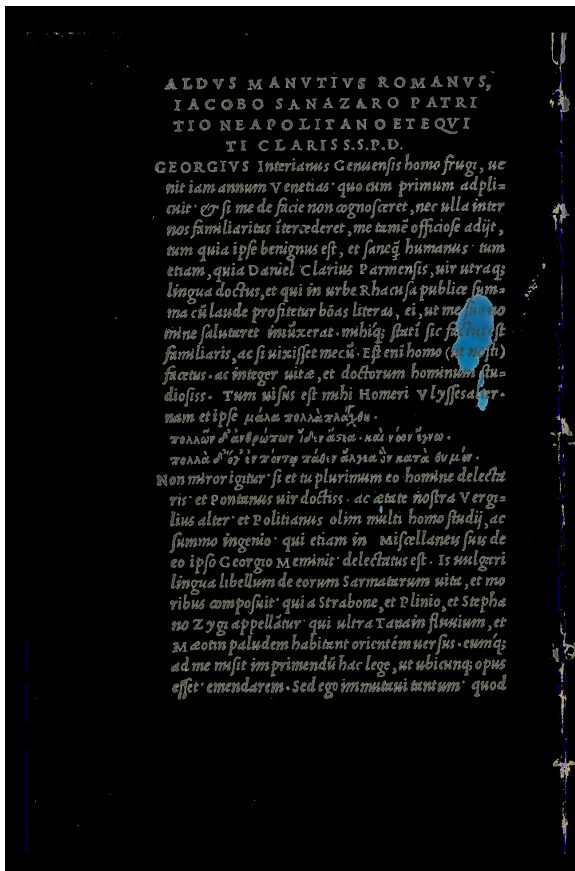 ALDVS MANVTIVS ROMANVS,
IACOBO SANAZARO PATRI
TIO NEAPOLITANO ET EQVI
TI CLARISS. S. P. D.
GEORGIVS Interianus Genuensis homo frugi, ue
nit iam annum Venetias· quo cum primum adpli=
cuit· & si me de facie non cognosceret, nec ulla inter
nos familiaritas itercederet, me tamē officiose adijt,
tum quia ipse benignus est, et saneq̄ humanus· tum
etiam, quia Daniel Clarius Parmensis, uir utraq;
lingua doctus, et qui in urbe Rhacusa publice sum=
ma cū laude profitetur bōas literas, ei, ut me suo no
mine salutaret iniūxerat· mihiq; stati sic factus est
familiaris, ac si uixisset mecū· Est eni homo (ut nosti)
facetus· ac integer uitæ, et doctorum hominum stu=
diosiss· Tum uisus est mihi Homeri Vlysses alter·
nam et ipse μάλα πολλὰ πλάγχθη·
πολλῶν δ' ἀνθρώπων ἴδεν ἄστεα· καὶ νόον ἔγνω·
πολλὰ δ' ὅγ' ἐν πόντῳ πάθεν ἄλγεα ὃν κατὰ θυμόν·
Non miror igitur· si et tu plurimum eo homine delecta
ris· et Pontanus uir doctiss· ac ætate nostra Vergi=
lius alter· et Politianus olim multi homo studij, ac
summo ingenio· qui etiam in Miscellaneis suis de
eo ipso Georgio Meminit· delectatus est· Is uulgari
lingua libellum de eorum Sarmatarum uita, et mo
ribus composuit· qui a Strabone, et Plinio, et Stepha
no Zygi appellātur· qui ultra Tanain fluuium, et
Mæotin paludem habitant orientēm uersus· eumq;
ad me misit imprimendū hac lege, ut ubicunq; opus
esset· emendarem· Sed ego immutaui tantum· quod